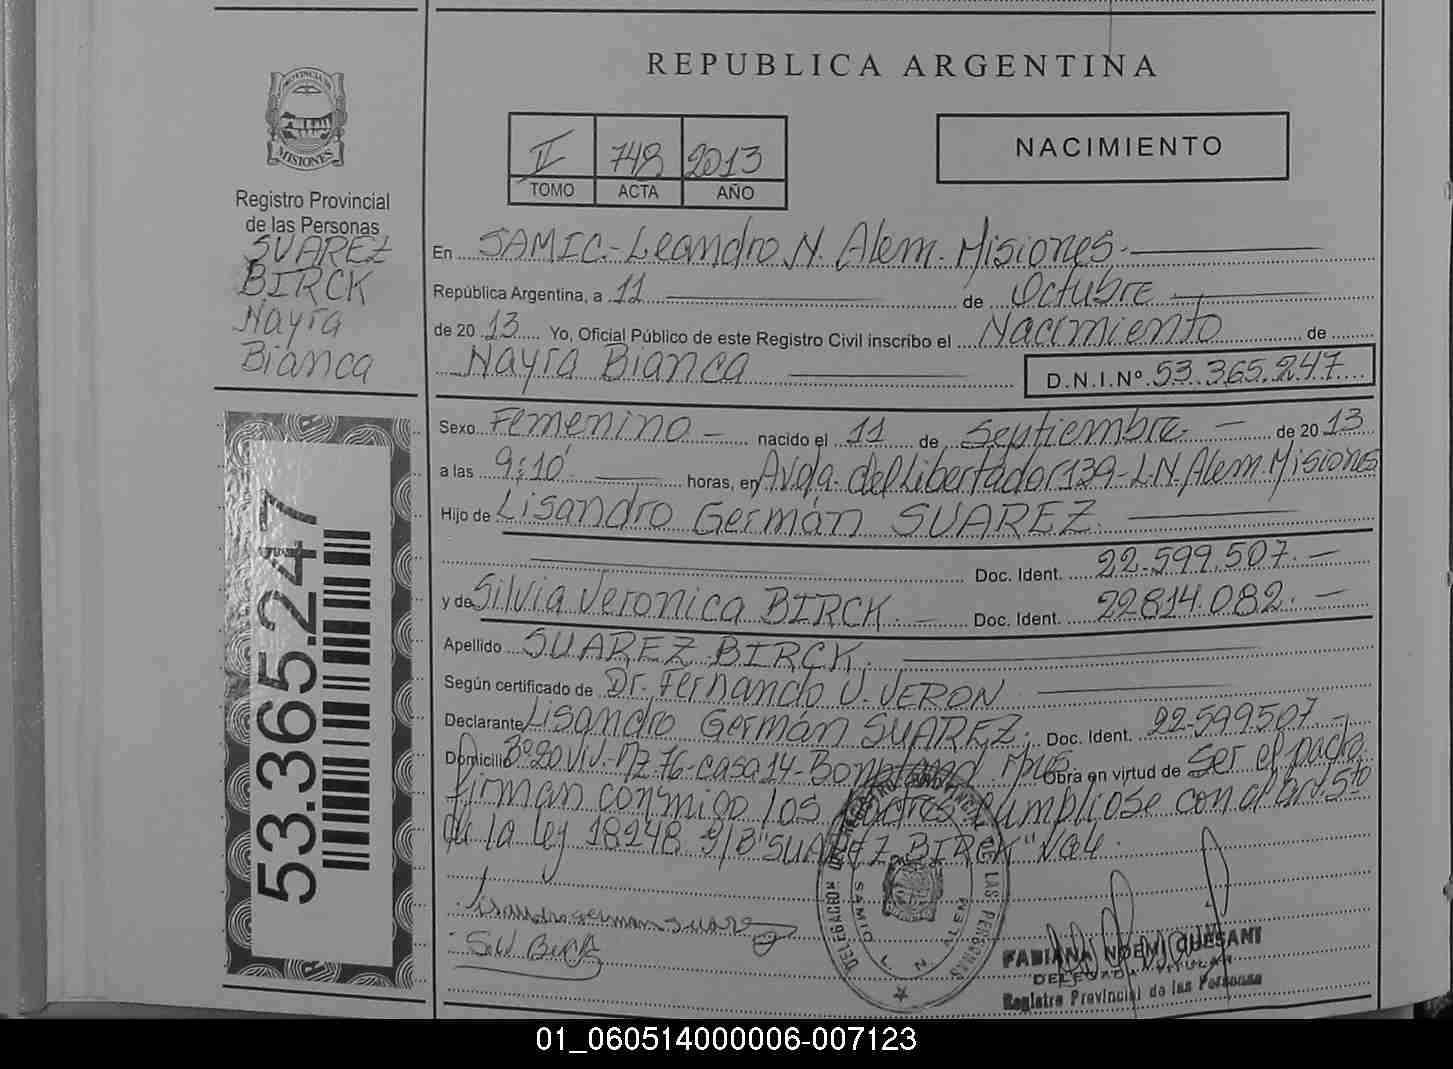 REPUBLICA ARGENTINA
PROVINCIA DE
MISIONES
Registro Provincial
de las Personas
SUAREZ
BIRCK
Nayra
Bianca
II 748 2013
TOMO ACTA AÑO
NACIMIENTO
En SAMIC.- Leandro N. Alem. Misiones.
República Argentina, a 11 de Octubre
de 20 13 Yo, Oficial Público de este Registro Civil inscribo el Nacimiento de
Nayra Bianca D.N.I.Nº 53.365.247
Sexo Femenino - nacido el 11 de Septiembre. - de 20 13
a las 9:10' horas, en Avda. del Libertador 139-L.N. Alem. Misiones
Hijo de Lisandro Germán SUAREZ.
Doc. Ident. 22.599.507. -
y de Silvia Veronica BIRCK. - Doc. Ident. 22814.082. -
Apellido SUAREZ BIRCK.
Según certificado de Dr. Fernando V. VERON
Declarante Lisandro Germán SUAREZ. Doc. Ident. 22-599507 -
Domicilio Bº 20 Viv.-Mz 76-casa 14-Bonpland Obra en virtud de ser el padre.
firman conmigo los cumpliose con el art 5to
de la ley 18248 S/B "SUAREZ BIRCK" Vale.
Lisandro german suarez
S.V. Birck
DELEGACION DEL REGISTRO PROVINCIAL DE LAS PERSONAS
SAMIC L N ALEM
FABIANA NOEMI
DELEGADA TITULAR
Registro Provincial de las Personas
53.365.247
01_060514000006-007123